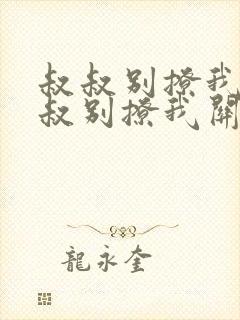 叔叔别撩我
叔别撩我開
龍永奎